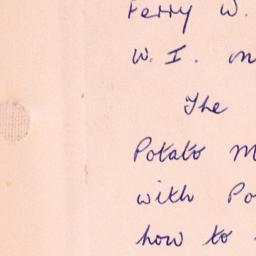 Ferry W.
W. I. m
The
Potato M
with Po
how to